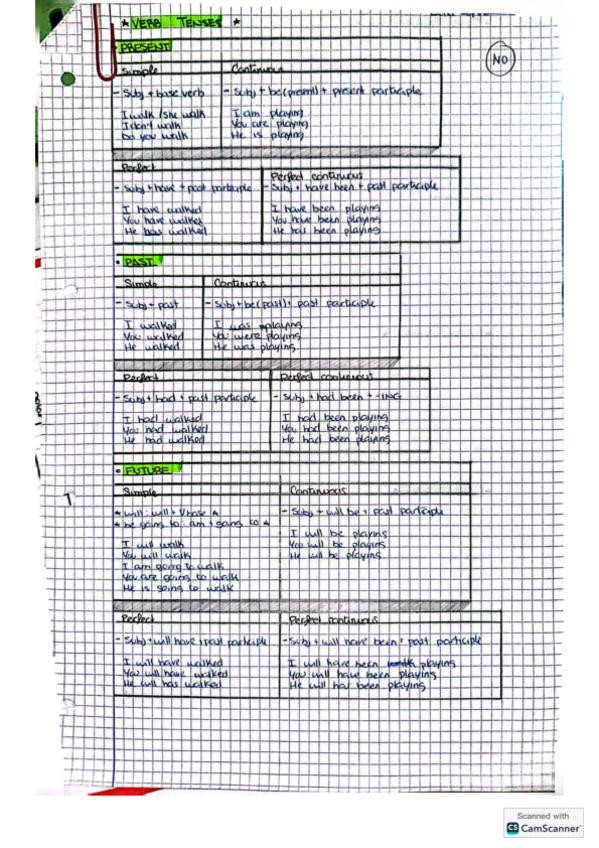 * VERB TENSES *
NO
• PRESENT
Simple Continuous
- Subj + base verb - Subj + be (present) + present participle
I walk / she walk I am playing
I don't walk You are playing
Do you walk He is playing
Perfect Perfect continuous
- Subj + have + past participle - Subj + have been + past participle
I have walked I have been playing
You have walked You have been playing
He has walked He has been playing
• PAST
Simple Continuous
- Subj + past - Subj + be (past) + past participle
I walked I was playing
You walked You were playing
He walked He was playing
Perfect Perfect continuous
- Subj + had + past participle - Subj + had been + -ING
I had walked I had been playing
You had walked You had been playing
He had walked He had been playing
• FUTURE
Simple Continuous
* will: will + Vbase * - Subj + will be + past participle
* be going to: am + going to *
I will walk I will be playing
You will walk You will be playing
I am going to walk He will be playing
You are going to walk
He is going to walk
Perfect Perfect continuous
- Subj + will have + past participle - Subj + will have been + past participle
I will have walked I will have been playing
You will have walked You will have been playing
He will has walked He will has been playing
Scanned with
CS CamScanner